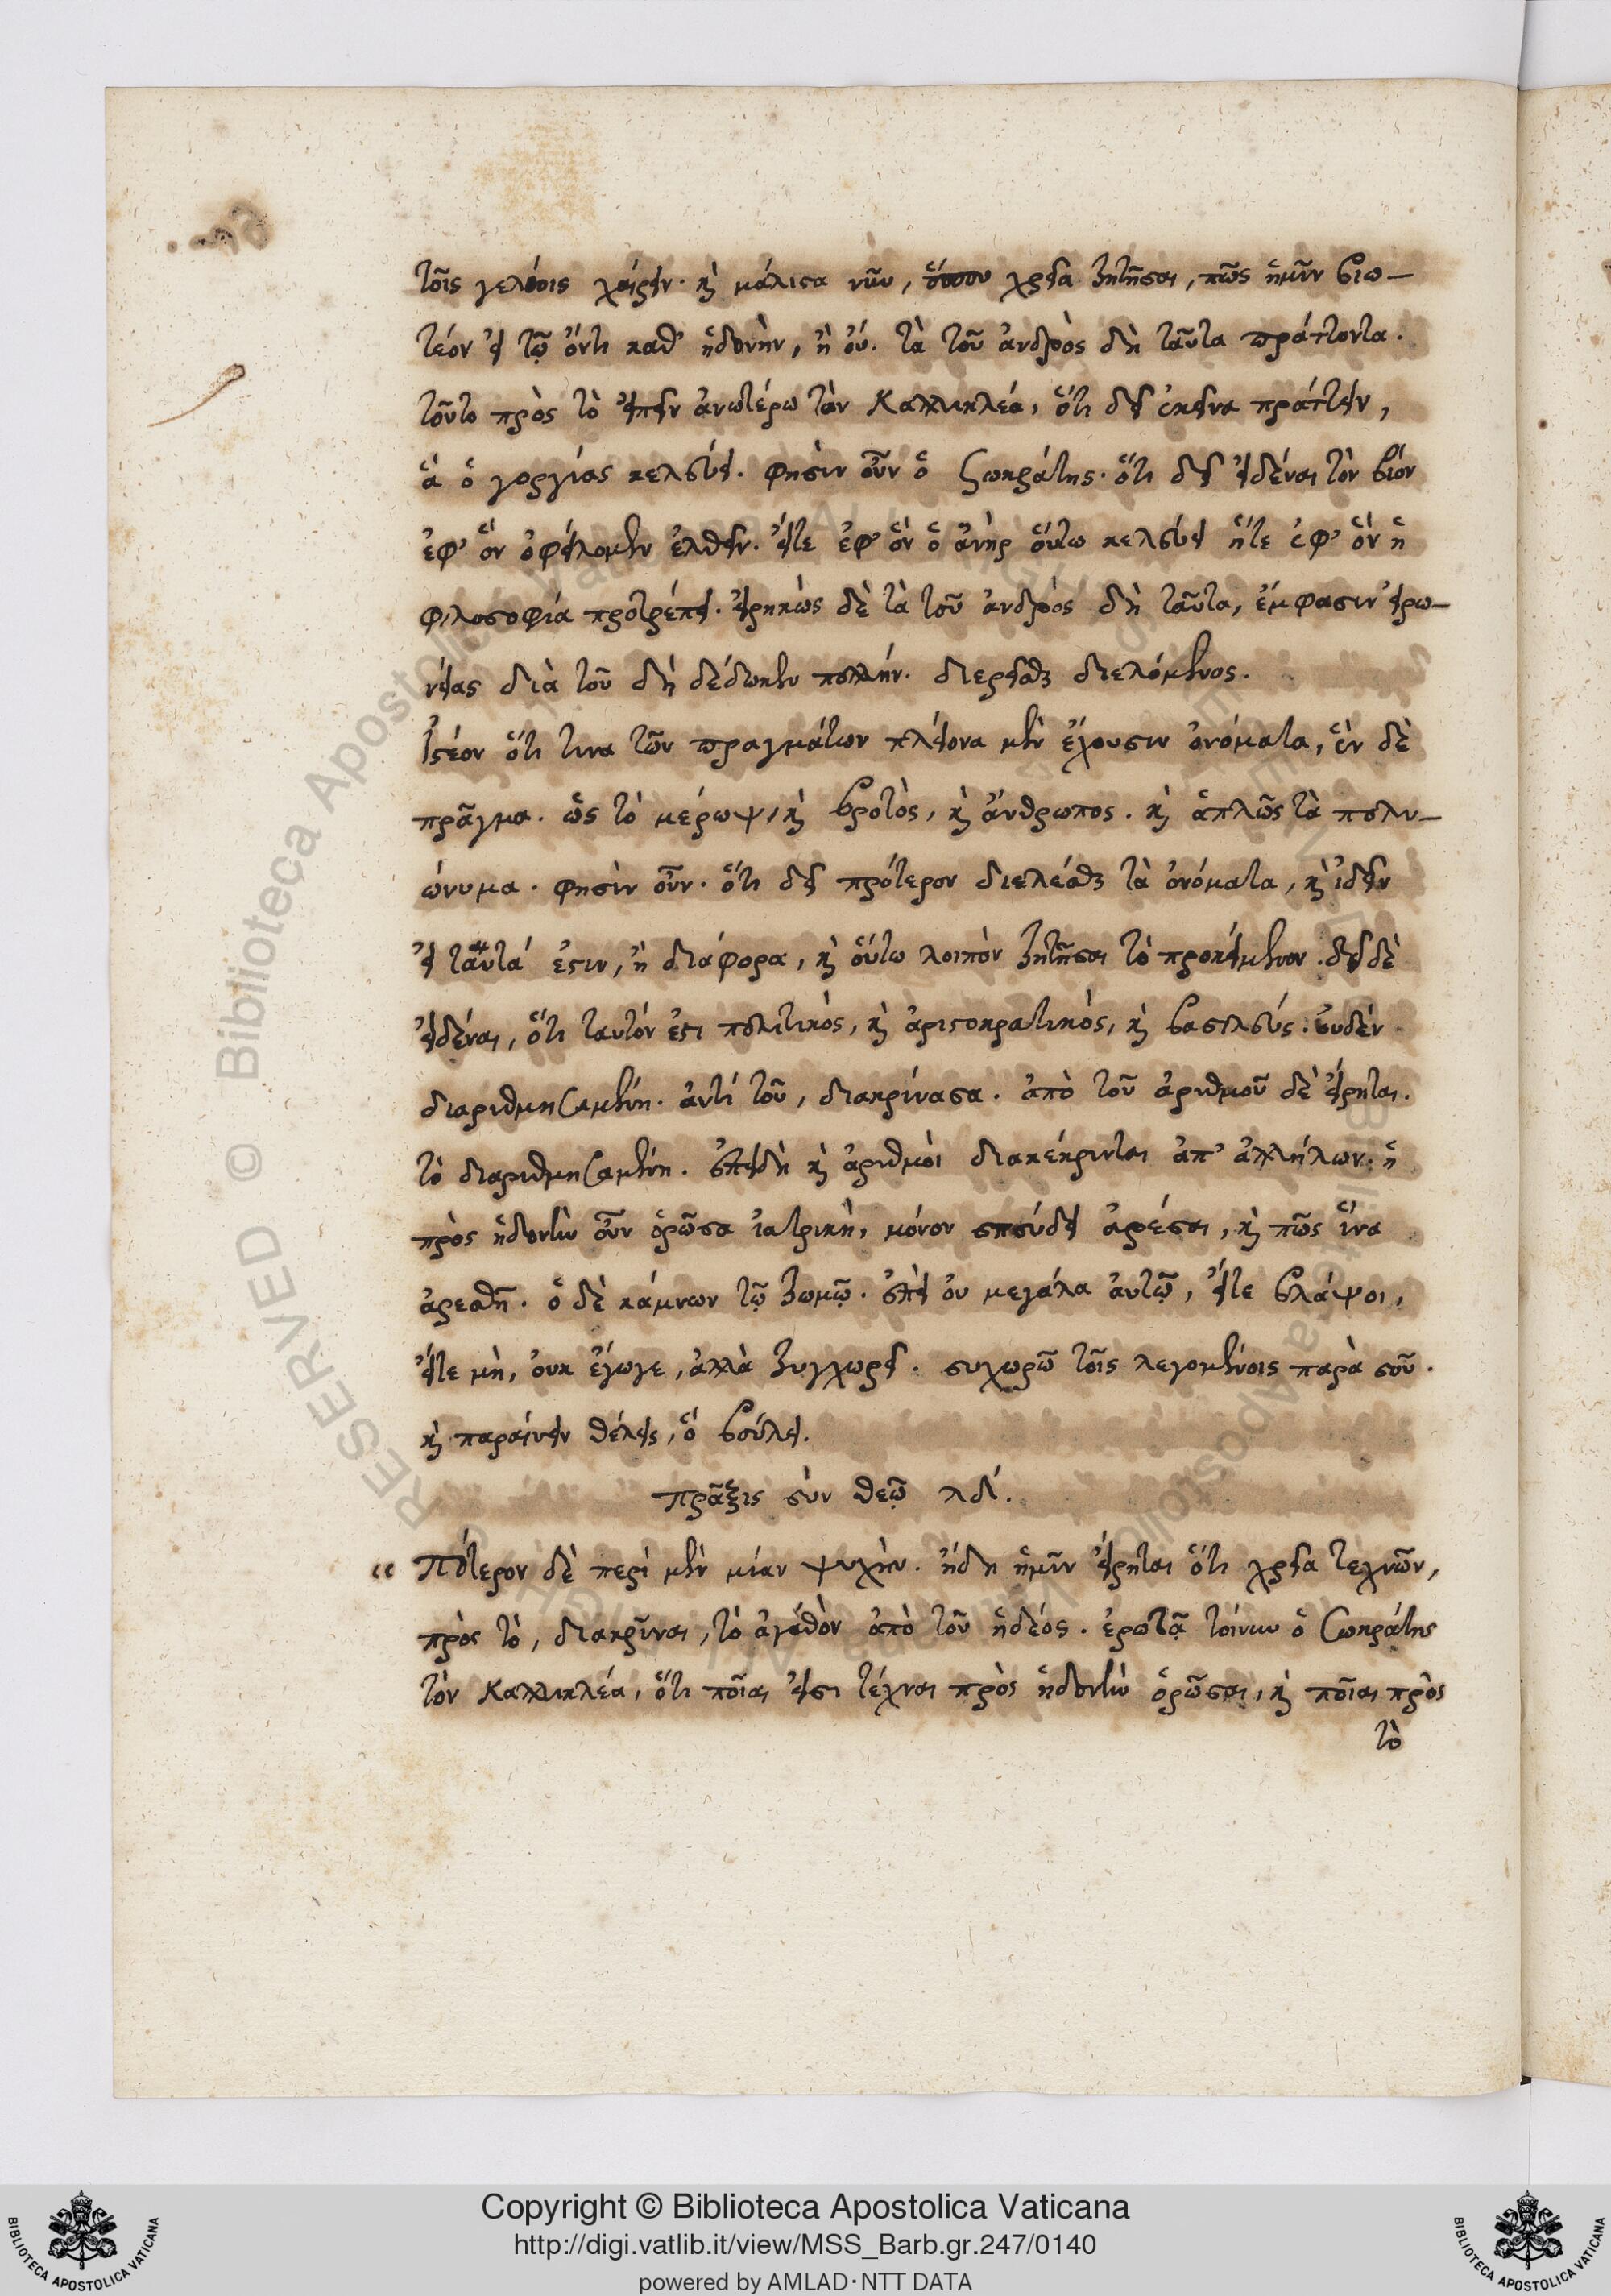 τοῖς γελοίοις χαίρειν. καὶ μάλιστα νῦν, ὅπου χρεία ζητῆσαι, πῶς ἡμῖν βιω-
τέον εἰ τῷ ὄντι καθ' ἡδονὴν, ἢ οὔ. τὰ τοῦ ἀνδρὸς δὴ ταῦτα πράττοντα.
τοῦτο πρὸς τὸ εἰπεῖν ἀνωτέρω τὸν Καλλικλέα, ὅτι δεῖ ἐκεῖνα πράττειν,
ἃ ὁ γοργίας κελεύει. φησὶν οὖν ὁ Σωκράτης. ὅτι δεῖ εἰδέναι τὸν βίον
ἐφ' ὃν ὀφείλομεν ἐλθεῖν. εἴτε ἐφ' ὃν ὁ ἀνὴρ οὕτω κελεύει ἤτε ἐφ' ὃν ἡ
φιλοσοφία προτρέπει. εἰρηκὼς δὲ τὰ τοῦ ἀνδρὸς δὴ ταῦτα, ἔμφασιν εἰρω-
νείας διὰ τοῦ δὴ δέδωκεν πολλήν. διερεῖσθαι διελόμενος.
Ἰστέον ὅτι τινα τῶν πραγμάτων πλείονα μὲν ἔχουσιν ὀνόματα, ἓν δὲ
πρᾶγμα. ὡς τὸ μέρωψ, καὶ βροτὸς, καὶ ἄνθρωπος. καὶ ἁπλῶς τὰ πολυ-
ώνυμα. φησὶν οὖν. ὅτι δεῖ πρότερον διελέσθαι τὰ ὀνόματα, καὶ ἰδεῖν
εἰ ταὐτά ἐστιν, ἢ διάφορα, καὶ οὕτω λοιπὸν ζητῆσαι τὸ προκείμενον. δεῖ δὲ
εἰδέναι, ὅτι ταυτόν ἐστι πολιτικὸς, καὶ ἀριστοκρατικὸς, καὶ βασιλεύς. ουδὲν
διαριθμησαμένη. ἀντὶ τοῦ, διακρίνασα. ἀπὸ τοῦ ἀριθμοῦ δὲ εἴρηται.
τὸ διαριθμησαμένη. ἐπειδὴ καὶ ἀριθμοὶ διακέκρινται ἀπ' ἀλλήλων. ἡ
πρὸς ἡδονὴν οὖν ὁρῶσα ἰατρικὴ, μόνον σπεύδει ἀρέσαι, καὶ πῶς ἵνα
ἀρεσθῇ. ὁ δὲ κάμνων τῷ ζωμῷ. ἐπεὶ οὐ μεγάλα ἀυτῷ, εἴτε βλάψοι,
εἴτε μὴ, ὀυκ ἔγωγε, ἀλλὰ ξυγχωρεῖ. συχωρῶ τοῖς λεγομένοις παρὰ σοῦ.
καὶ παραίνειν θέλεις, ὃ βούλει.
πρᾶξις σὺν θεῷ λδ´.
“ Πότερον δὲ περὶ μὲν μίαν ψυχὴν. ἤδη ἡμῖν εἴρηται ὅτι χρεία τεχνῶν,
πρὸς τὸ, διακρῖναι, τὸ ἀγαθὸν ἀπὸ τοῦ ἡδέος. ἐρωτᾷ τοίνυν ὁ Σωκράτης
τὸν Καλλικλέα, ὅτι ποῖαι εἰσι τέχναι πρὸς ἡδονὴν ὁρῶσαι, καὶ ποῖαι πρὸς
τὸ
Copyright © Biblioteca Apostolica Vaticana
http://digi.vatlib.it/view/MSS_Barb.gr.247/0140
powered by AMLAD·NTT DATA